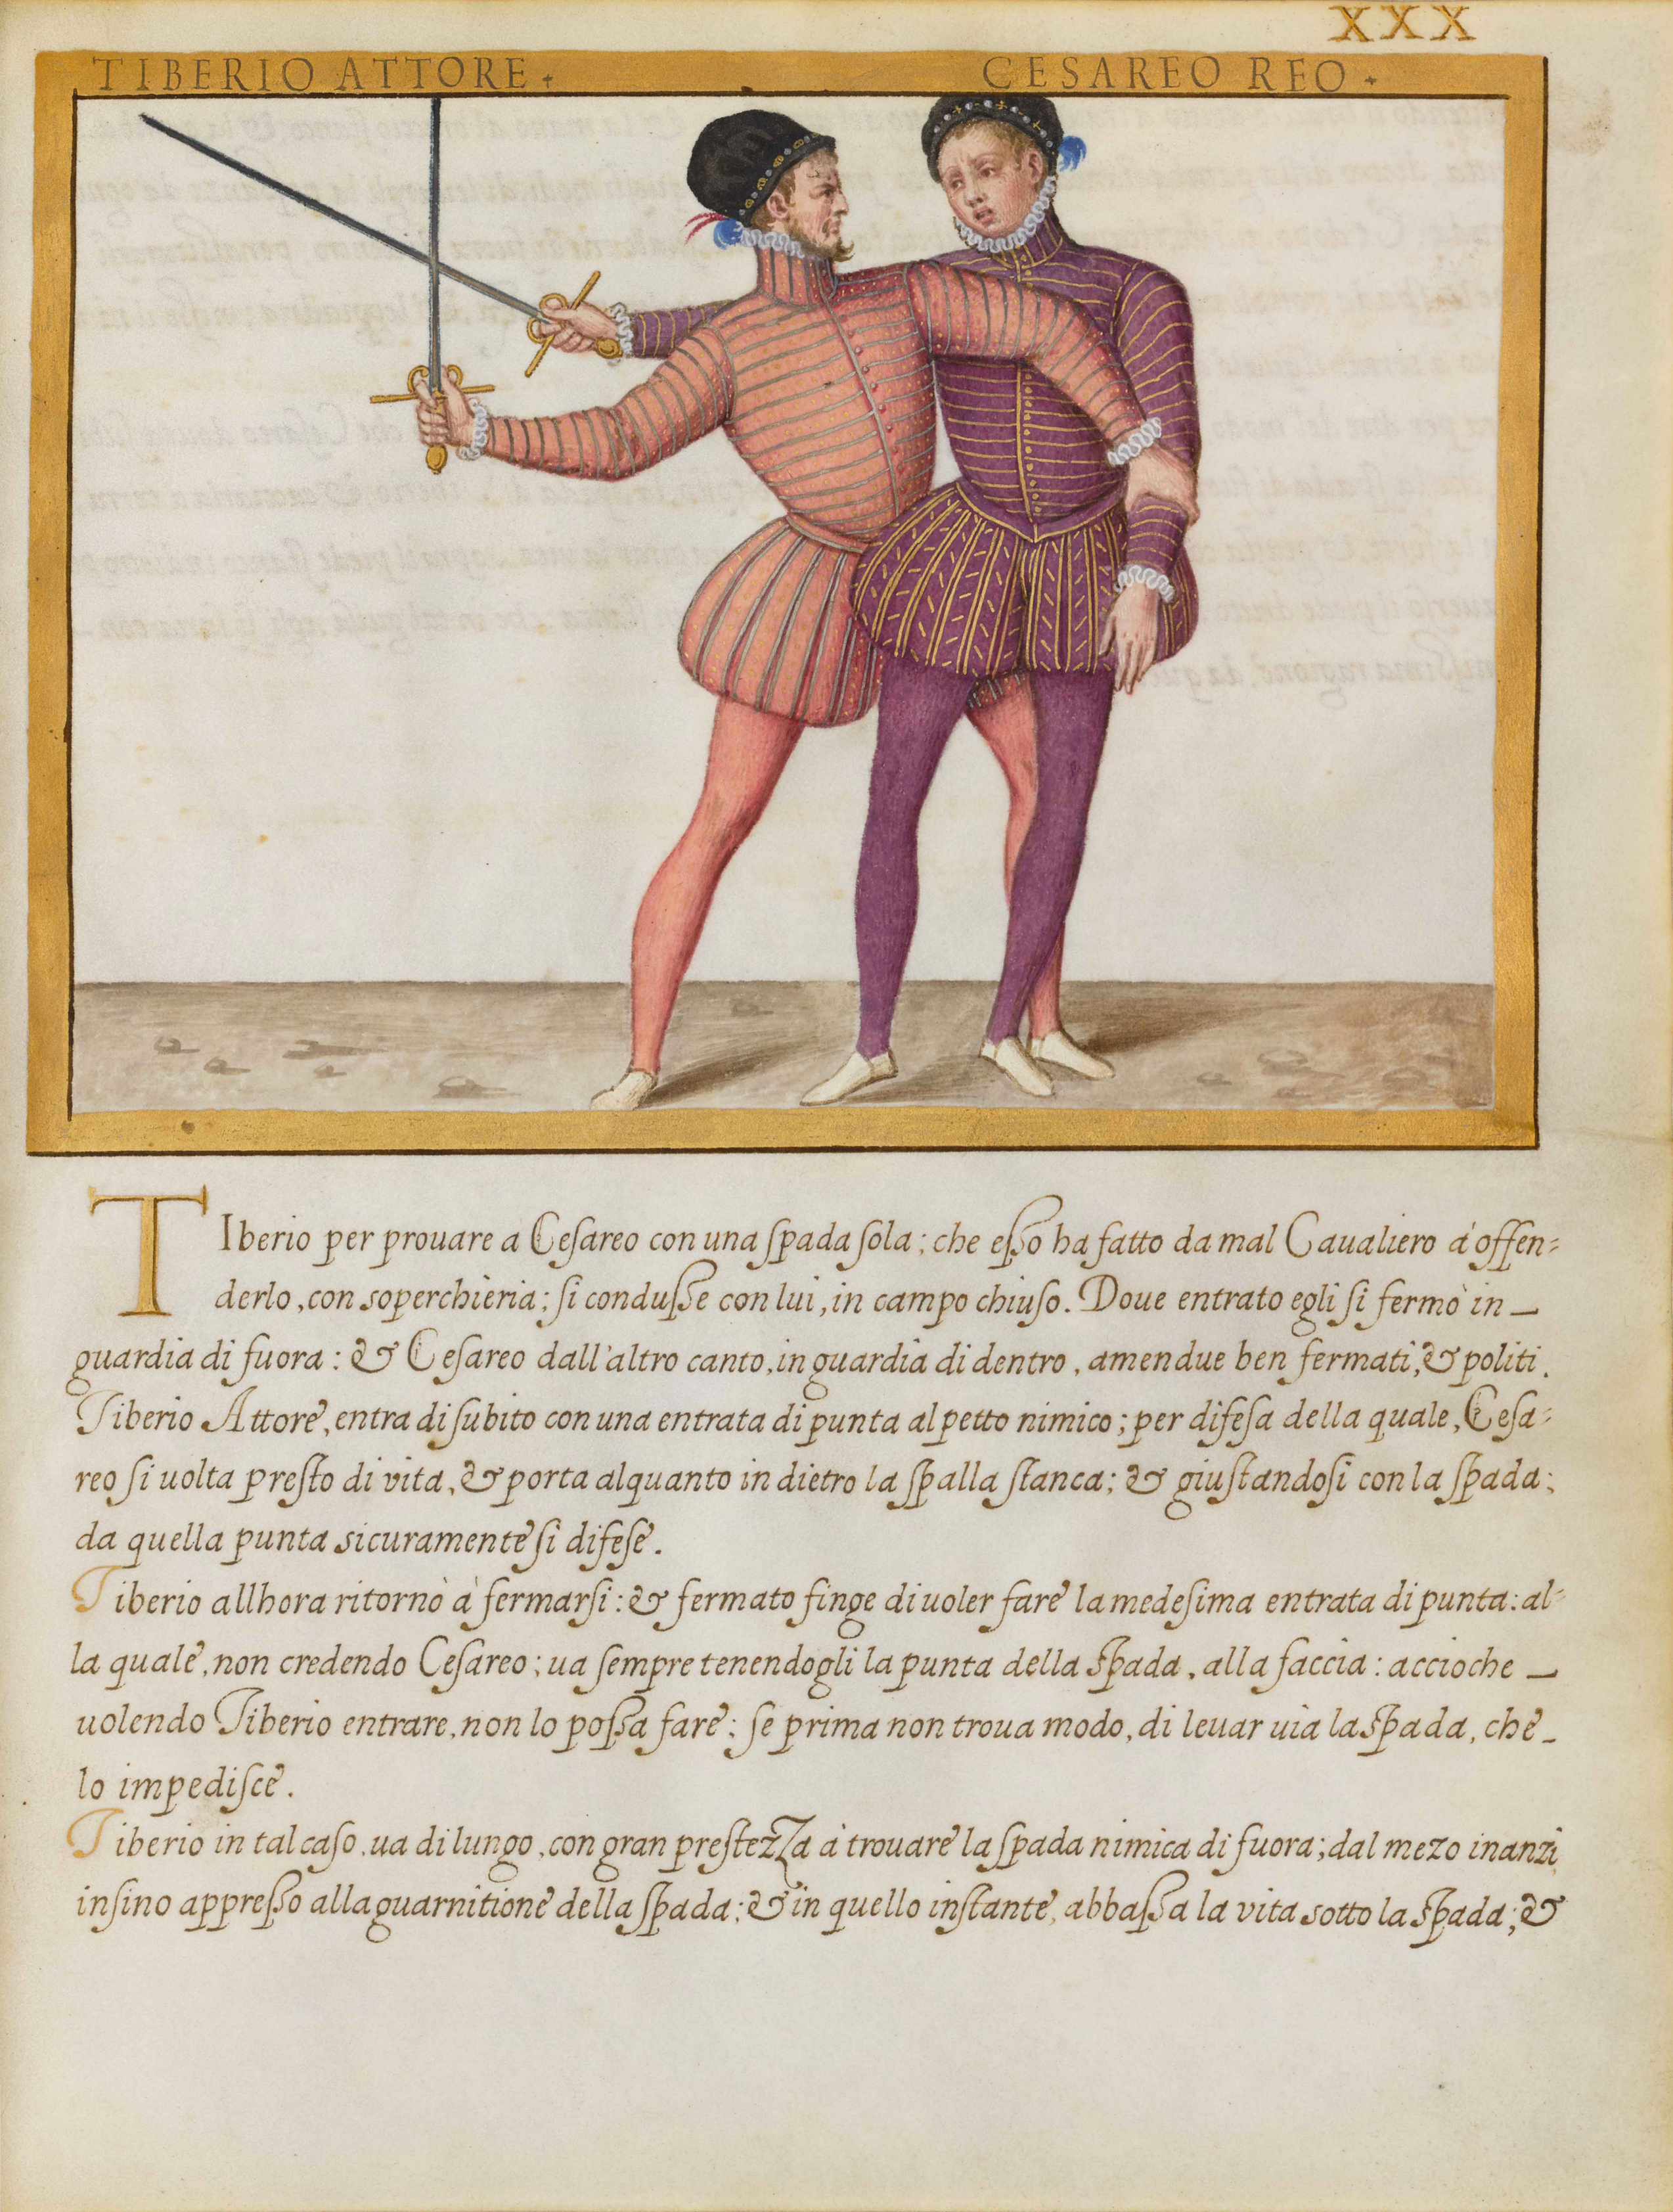 XXX
TIBERIO ATTORE CESAREO REO
TIberio per prouare a Cesareo con una spada sola; che esso ha fatto da mal Caualiero à offen=
derlo, con soperchieria; si condusse con lui, in campo chiuso. Doue entrato egli si fermò in _
guardia di fuora: & Cesareo dall'altro canto, in guardia di dentro, amendue ben fermati, & politi.
Tiberio Attore, entra di subito con una entrata di punta al petto nimico; per difesa della quale, Cesa=
reo si uolta presto di vita, & porta alquanto in dietro la spalla stanca; & giustandosi con la spada;
da quella punta sicuramente si difese.
Tiberio allhora ritornò à fermarsi: & fermato finge di uoler fare la medesima entrata di punta: al=
la quale, non credendo Cesareo; ua sempre tenendogli la punta della spada, alla faccia: accioche _
uolendo Tiberio entrare, non lo possa fare; se prima non troua modo, di leuar uia la spada, che _
lo impedisce.
Tiberio in tal caso, ua di lungo, con gran prestezza à trouare la spada nimica di fuora; dal mezo inanzi
insino appresso alla guarnitione della spada; & in quello instante, abbassa la vita sotto la spada; &